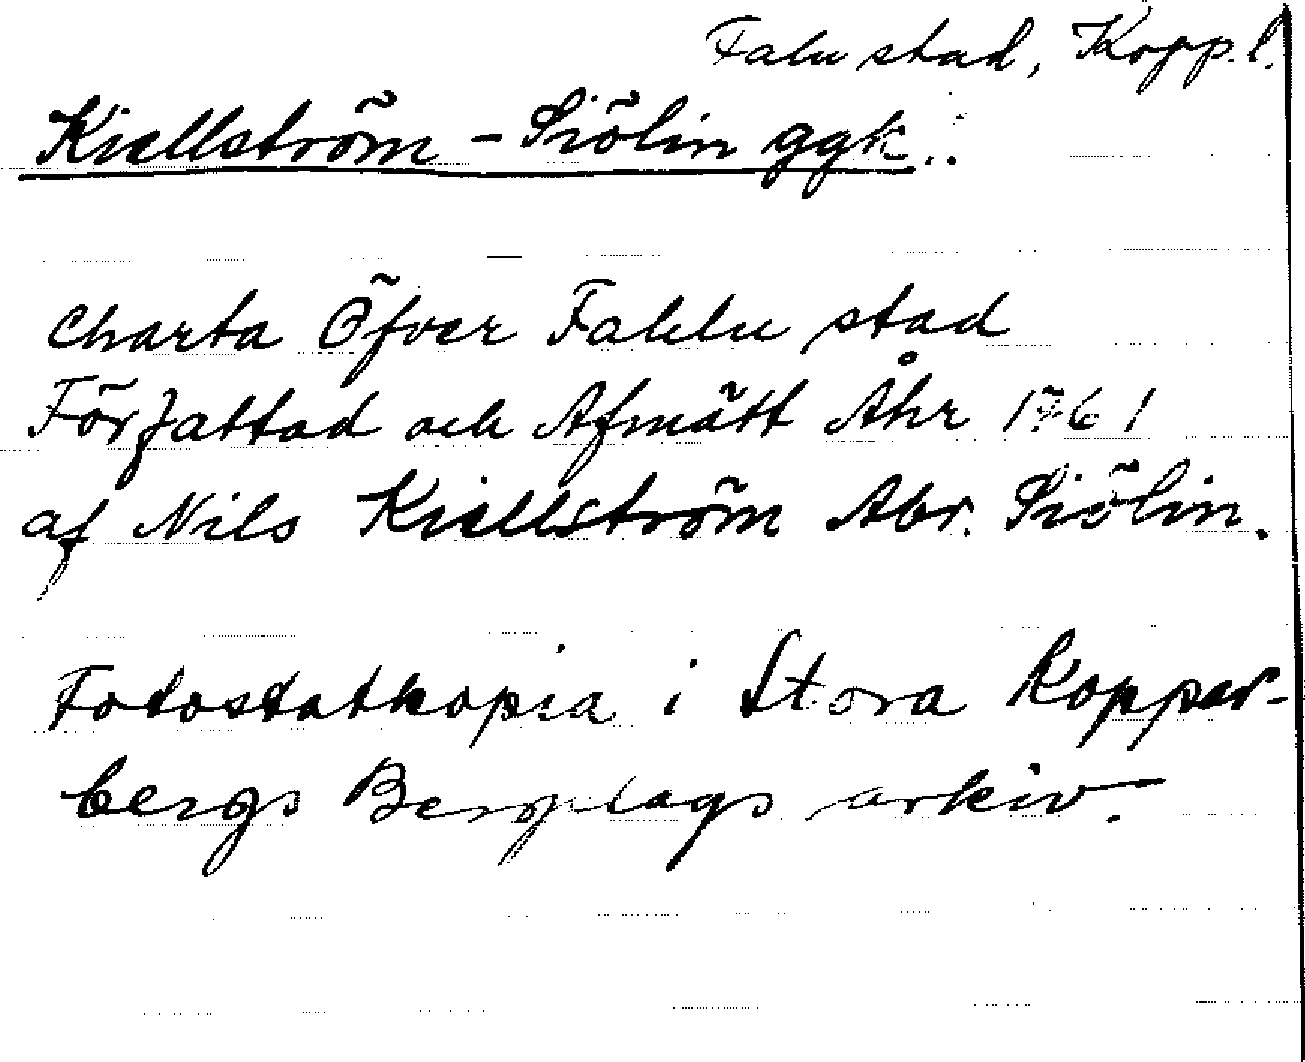 Falu stad, Kopp. l.
Kiellström - Siölin ggk.
Charta Öfver Fahlu stad
Författad och Afmätt Åhr 1761
af Nils Kiellström Abr. Siölin.
Fotostatkopia i Stora Koppar-
bergs Bergslags arkiv.